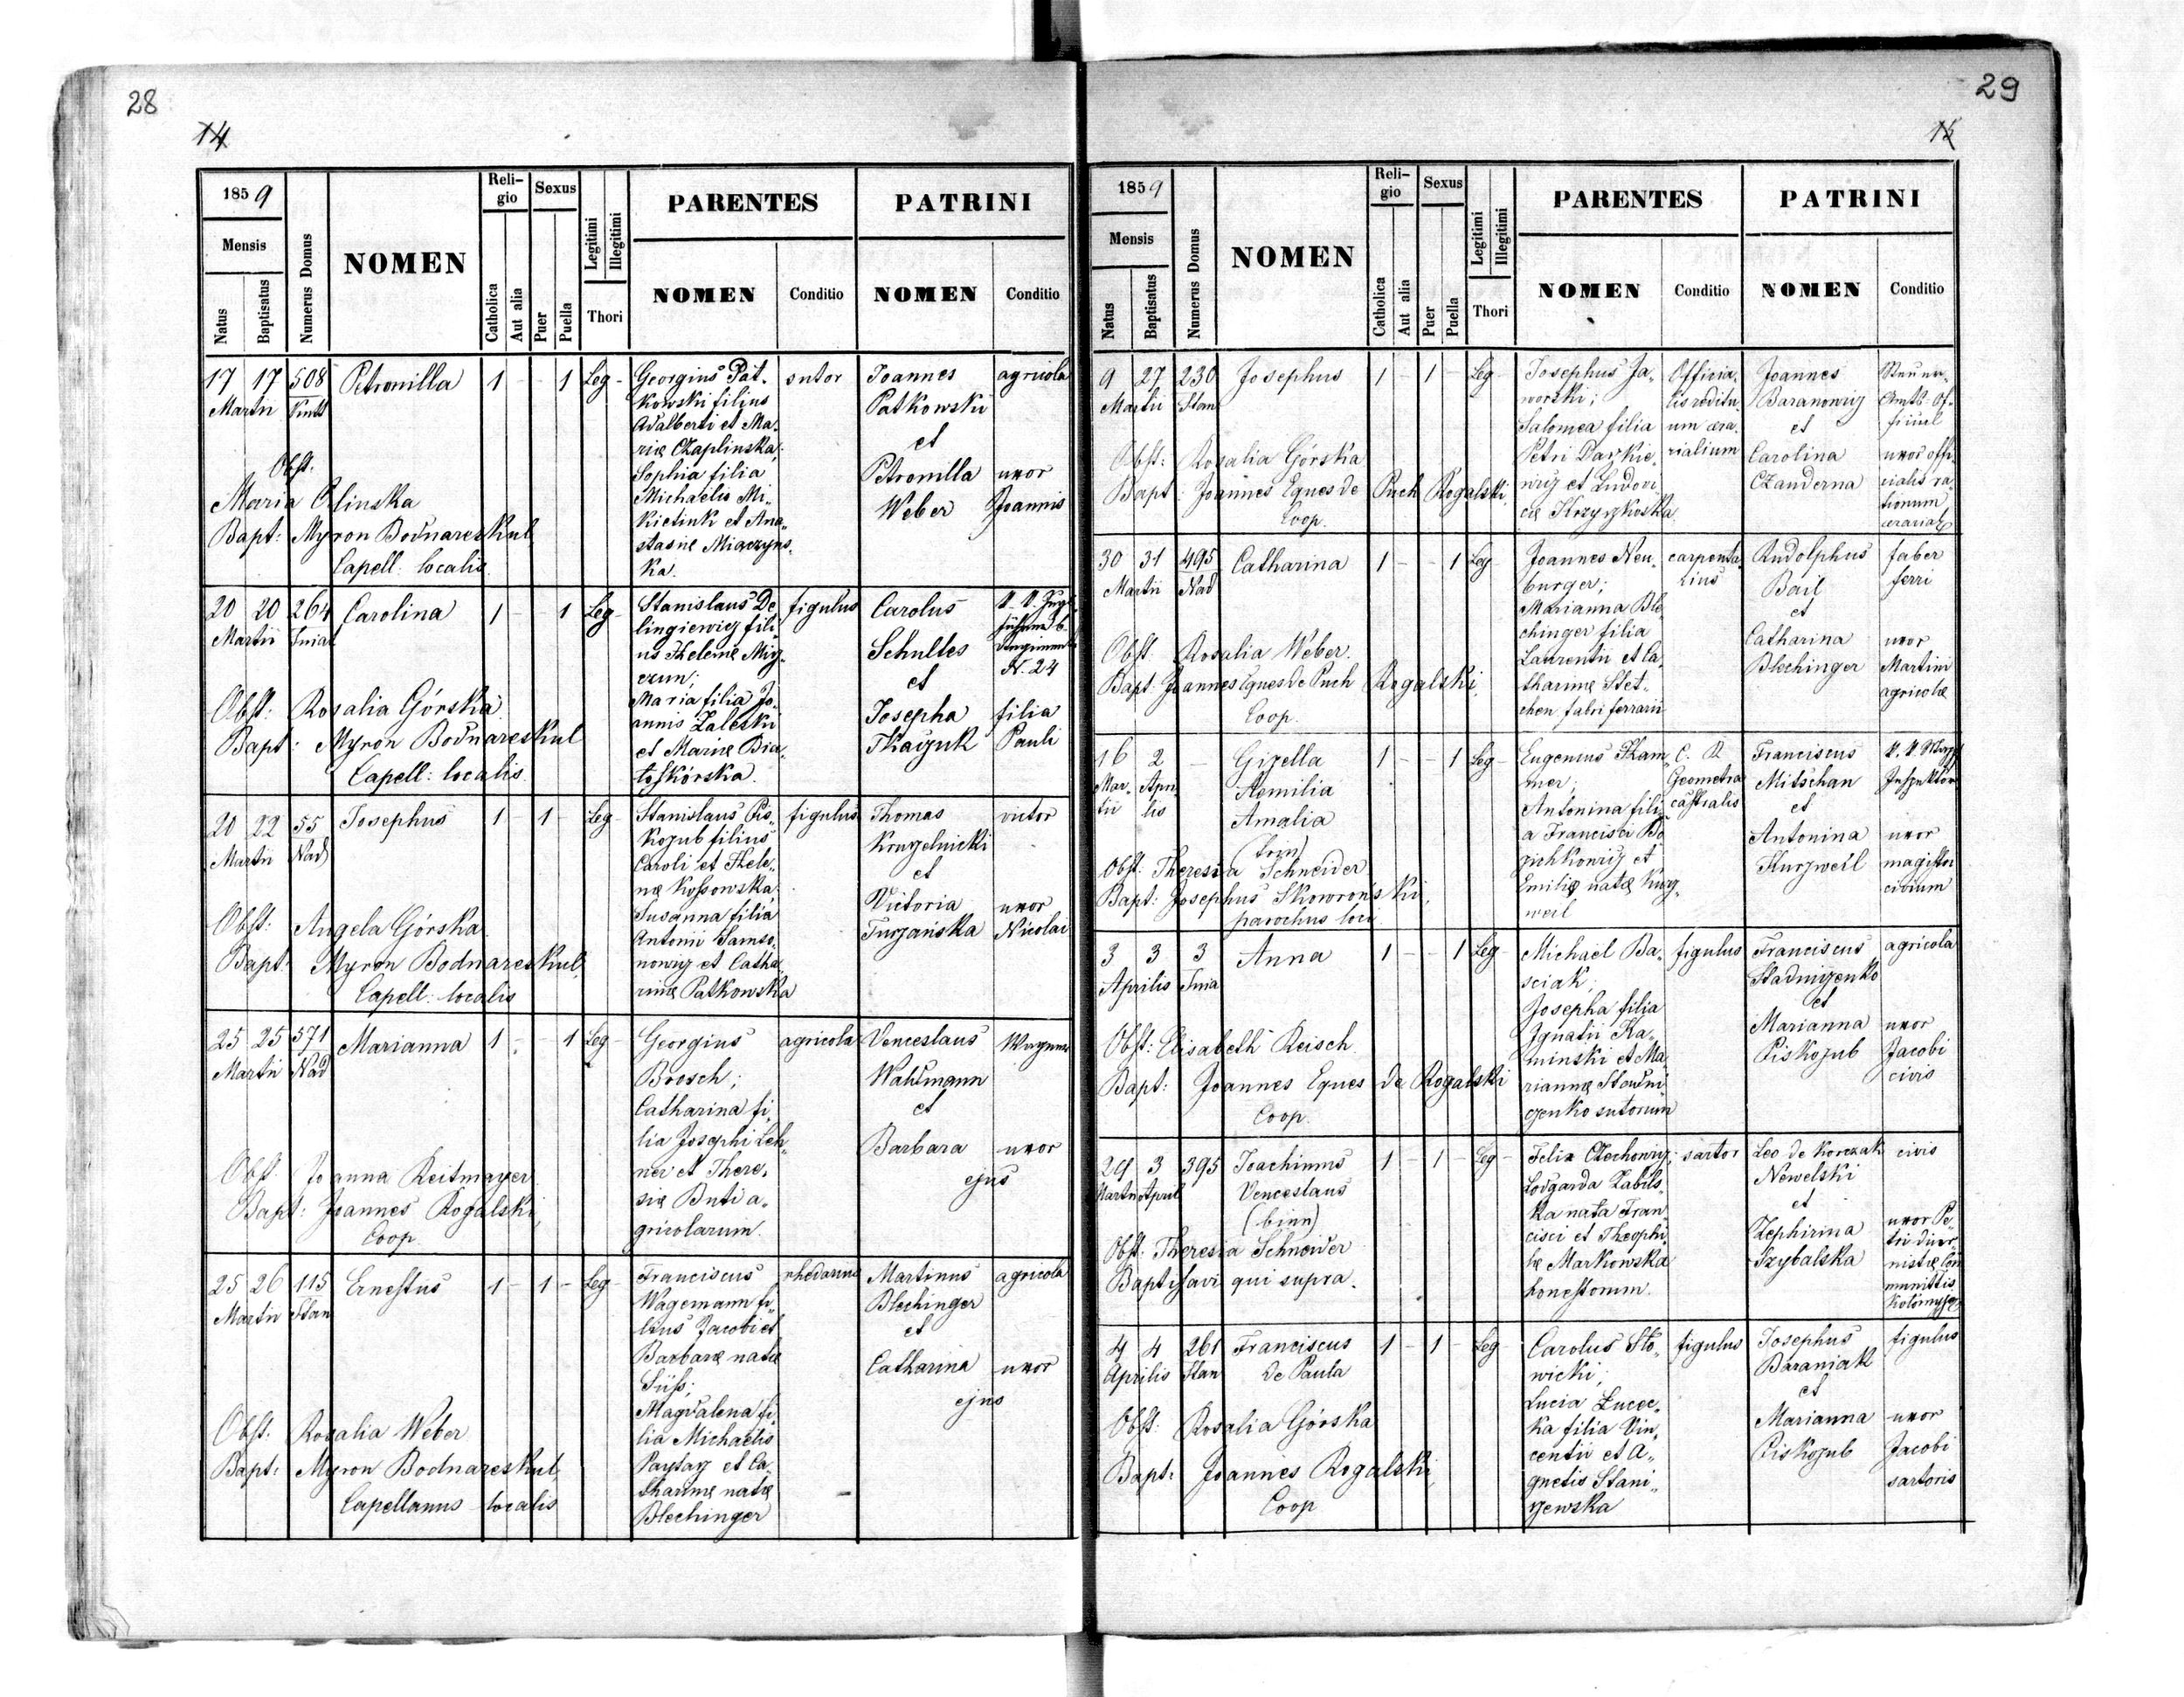 28
14
1859
Mensis
Natus
Baptisatus
Numerus Domus
NOMEN
Reli-
gio
Catholica
Aut alia
Sexus
Puer
Puella
Legitimi
Illegitimi
Thori
PARENTES
NOMEN
Conditio
PATRINI
NOMEN
Conditio
17 17 508 Petronilla 1 - - 1 Leg -
Martii
Obst.
Maria Olinska
Bapt: Myron Bodnareskul
Capell: localis.
Georgius Pat-
kowski filius
Adalberti et Ma-
riæ Czaplinska;
Sophia filia
Michaelis Mi-
kietiuk et Ana-
stasiæ Miaczyns-
ka.
sutor
Joannes
Patkowski
et
Petronilla
Weber
agricola
uxor
Joannis
20 20 264 Carolina 1 - - 1 Leg -
Martii
Obst: Rosalia Górska
Bapt: Myron Bodnareskul
Capell: localis.
Stanislaus De-
lingiewicz fili-
us Helenæ
Maria filia Jo-
annis Zaleski
et Mariæ Bia-
toskórska.
figulus
Carolus
Schultes
et
Josepha
Tkaczuk
N. 24
filia
Pauli
20 22 55 Josephus 1 - 1 - Leg -
Martii Nad
Obst: Angela Górska
Bapt: Myron Bodnareskul
Capell: localis
Stanislaus Pis-
kozub filius
Caroli et Hele-
næ Kossowska;
Susanna filia
Antonii Samso-
nowicz et Catha-
rinæ Patkowska
figulus
Thomas
Kruzelnicki
et
Victoria
Turjańska
victor
uxor
Nicolai
25 25 571 Marianna 1 - - 1 Leg -
Martii Nad
Obst. Joanna Reitmayer
Bapt: Joannes Rogalski,
Coop
Georgius
Brosch;
Catharina fi-
lia Josephi Leh-
ner et There-
siæ Buti a-
gricolarum.
agricola
Venceslaus
Wahlmann
et
Barbara
ejus
Wagner
uxor
25 26 115 Ernestus 1 - 1 - Leg -
Martii Stan
Obst. Rosalia Weber
Bapt: Myron Bodnareskul
Capellanus localis
Franciscus
Wagemann fi-
lius Jacobi et
Barbaræ natæ
Süss;
Magdalena fi-
lia Michaelis
Paytasz et Ca-
tharinæ natæ
Blechinger
rhedarius
Martinus
Blechinger
et
Catharina
ejus
agricola
uxor
29
15
1859
Mensis
Natus
Baptisatus
Numerus Domus
NOMEN
Reli-
gio
Catholica
Aut alia
Sexus
Puer
Puella
Legitimi
Illegitimi
Thori
PARENTES
NOMEN
Conditio
PATRINI
NOMEN
Conditio
9 27 230 Josephus 1 - 1 - Leg -
Martii Stan
Obst: Rosalia Górska
Bapt: Joannes Eques de Puch Rogalski,
Coop.
Josephus Ja-
worski;
Salomea filia
Petri Darkie-
wicz et Ludovi-
cæ Krzyzkoska
Officia-
lis reditu-
um æra-
rialium
Joannes
Baranowicz
et
Carolina
Czanderna
Steuer-
Amts-Of-
ficial
uxor offi-
cialis ra-
tionum
ærarial
30 31 495 Catharina 1 - - 1 Leg -
Martii Nad
Obst. Rosalia Weber.
Bapt: Joannes Eques de Puch Rogalski,
Coop.
Joannes Neu-
burger;
Marianna Ble-
chinger filia
Laurentii et Ca-
tharinæ Stet-
chen fabri ferrarii
carpenta-
rius
Rudolphus
Bail
et
Catharina
Blechinger
faber
ferri
uxor
Martini
agricolæ
16 2 - Gizella 1 - - 1 Leg -
Mar- Apri-
tii lis
Aemilia
Amalia
Obst: Theresia Schneider
Bapt: Josephus Skowroński,
parochus loci
Eugenius Kam-
mer;
Antonina fili-
a Francisci Bo-
Emiliæ natæ Kurz-
weil
C. R.
Geometra
castralis
Franciscus
Mitschan
et
Antonina
Kurzweil
Inspektor
uxor
magistri
civium
3 3 3 Anna 1 - - 1 Leg -
Aprilis
Obst: Elisabeth Reisch
Bapt: Joannes Eques de Rogalski
Coop.
Michael Ba-
sciak;
Josepha filia
Ignatii Ka-
minski et Ma-
riannæ Stadni-
czenko sutorum
figulus
Franciscus
Stadniczenko
et
Marianna
Piskozub
agricola
uxor
Jacobi
civis
29 3 395 Joachimus 1 - 1 - Leg -
Martii April
Venceslaus
(binn)
Obst: Theresia Schneider
Baptisavi qui supra.
Felix Czechowicz;
Lodgarda Zabils-
ka nata Fran-
cisci et Theophi-
læ Markowska
honestorum.
sartor
Leo de Korczak
Newelski
et
Zephirina
Szybalska
civis
uxor Pe-
tri diur-
nistæ Com-
munittis
Kolomyjæ
4 4 261 Franciscus 1 - 1 - Leg -
Aprilis Stan de Paula
Obst: Rosalia Górska
Bapt: Joannes Rogalski,
Coop
Carolus Sło-
wicki;
Lucia Łucec-
ka filia Vin-
centii et A-
gnetis Stani-
szewska
figulus
Josephus
Baraniak
et
Marianna
Piskozub
figulus
uxor
Jacobi
sartoris